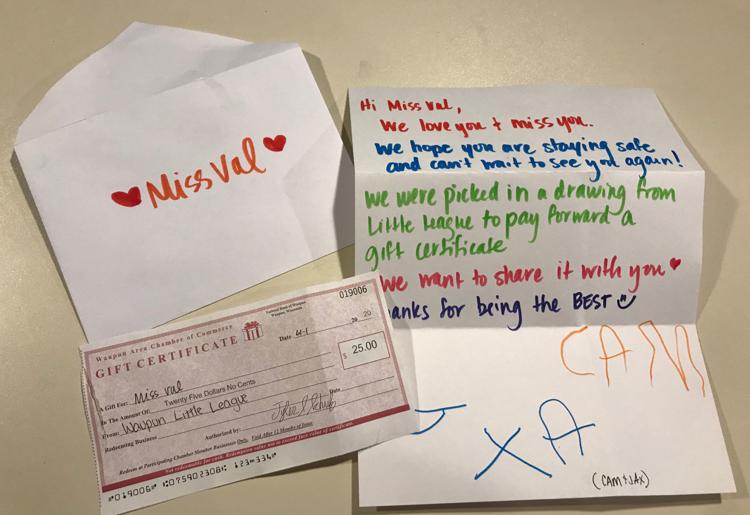 Miss Val
Hi Miss Val,
We love you + miss you.
We hope you are staying safe
and can't wait to see you again!
We were picked in a drawing from
Little League to pay forward a
gift certificate
We want to share it with you
anks for being the BEST
CAM
JAX
(CAM + JAX)
019006
National Bank of Waupun
Waupun, Wisconsin
Waupun Area Chamber of Commerce
GIFT CERTIFICATE
Date 6-1 20 20
$ 25.00
A Gift For: Miss Val
In The Amount Of: Twenty Five Dollars No Cents
From: Waupun Little League
Date
Redeeming Business
Authorized by:
Redeem at Participating Chamber Member Businesses Only. Void After 12 Months of Issue
Not redeemable for cash. Redemption value not to exceed face value of certificate.
⑈019006⑈ ⑆075902308⑆ 123⑉334⑈